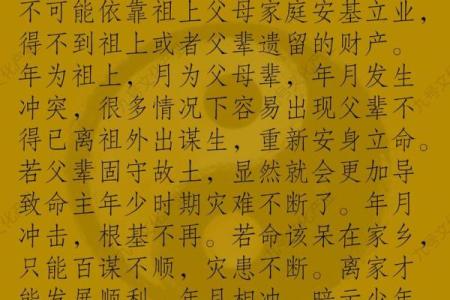 不可能依靠祖上父母家庭安基立业，
得不到祖上或者父辈遗留的财产。
年为祖上，月为父母辈，年月发生
冲突，很多情况下容易出现父辈不
得已离祖外出谋生，重新安身立命。
若父辈固守故土，显然就会更加导
致命主年少时期灾难不断了。年月
冲击，根基不再。若命该呆在家乡，
只能百谋不顺，灾患不断。离家才
能发展顺利。年月相冲，暗示少年